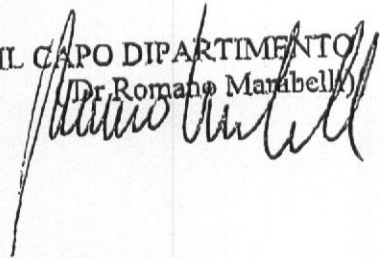 IL CAPO DIPARTIMENTO
(Dr. Romano Marabelli)